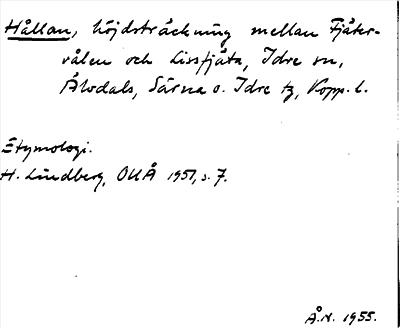 Hållan, höjdsträckning mellan Fjäter-
vålen och Lissfjäta, Idre sn,
Älvdals, Särna o. Idre tg, Kopp. l.
Etymologi.
H. Lindberg, OUÅ 1951, s. 7.
Å.N. 1955.